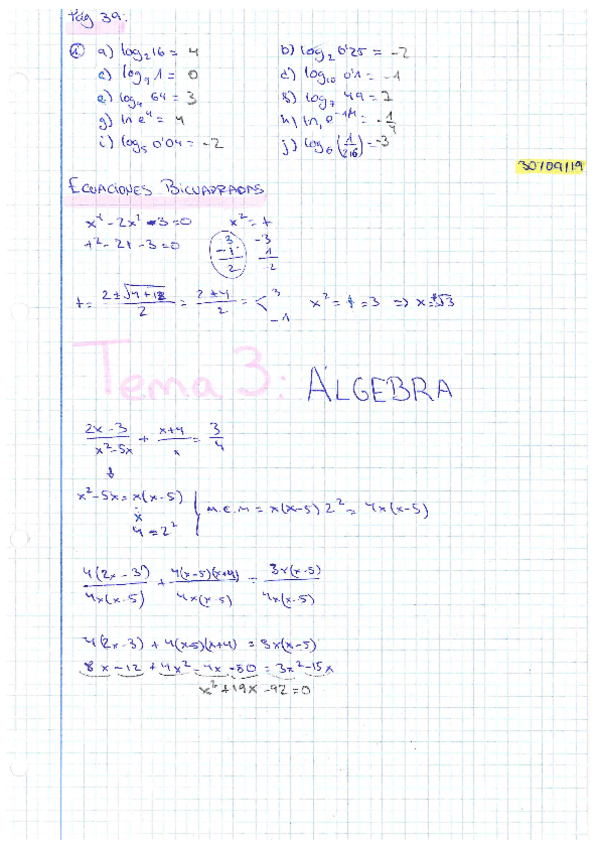 Pág 39:
① a) log₂16 = 4 b) log₂ 0'25 = -2
c) log₉ 1 = 0 d) log₁₀ 0'1 = -1
e) log₄ 64 = 3 f) log₇ 49 = 2
g) ln e⁴ = 4 h) ln e^-1/4 = -1/4
i) log₅ 0'04 = -2 j) log₆ (1/216) = -3
30/09/19
ECUACIONES BICUADRADAS
x⁴ - 2x² - 3 = 0 x² = t
t² - 2t - 3 = 0 3 -3
-1 1
2 -2
t = (2 ± √4+12)/2 = (2 ± 4)/2 = < 3 x² = t = 3 => x = ±√3
-1
Tema 3: ÁLGEBRA
(2x-3)/(x²-5x) + (x+4)/x = 3/4
↓
x² - 5x = x(x-5)
x m.c.m = x(x-5) 2² = 4x(x-5)
4 = 2²
4(2x-3)/4x(x-5) + 4(x-5)(x+4)/4x(x-5) = 3x(x-5)/4x(x-5)
4(2x-3) + 4(x-5)(x+4) = 3x(x-5)
8x - 12 + 4x² - 4x - 80 = 3x² - 15x
x² + 19x - 92 = 0